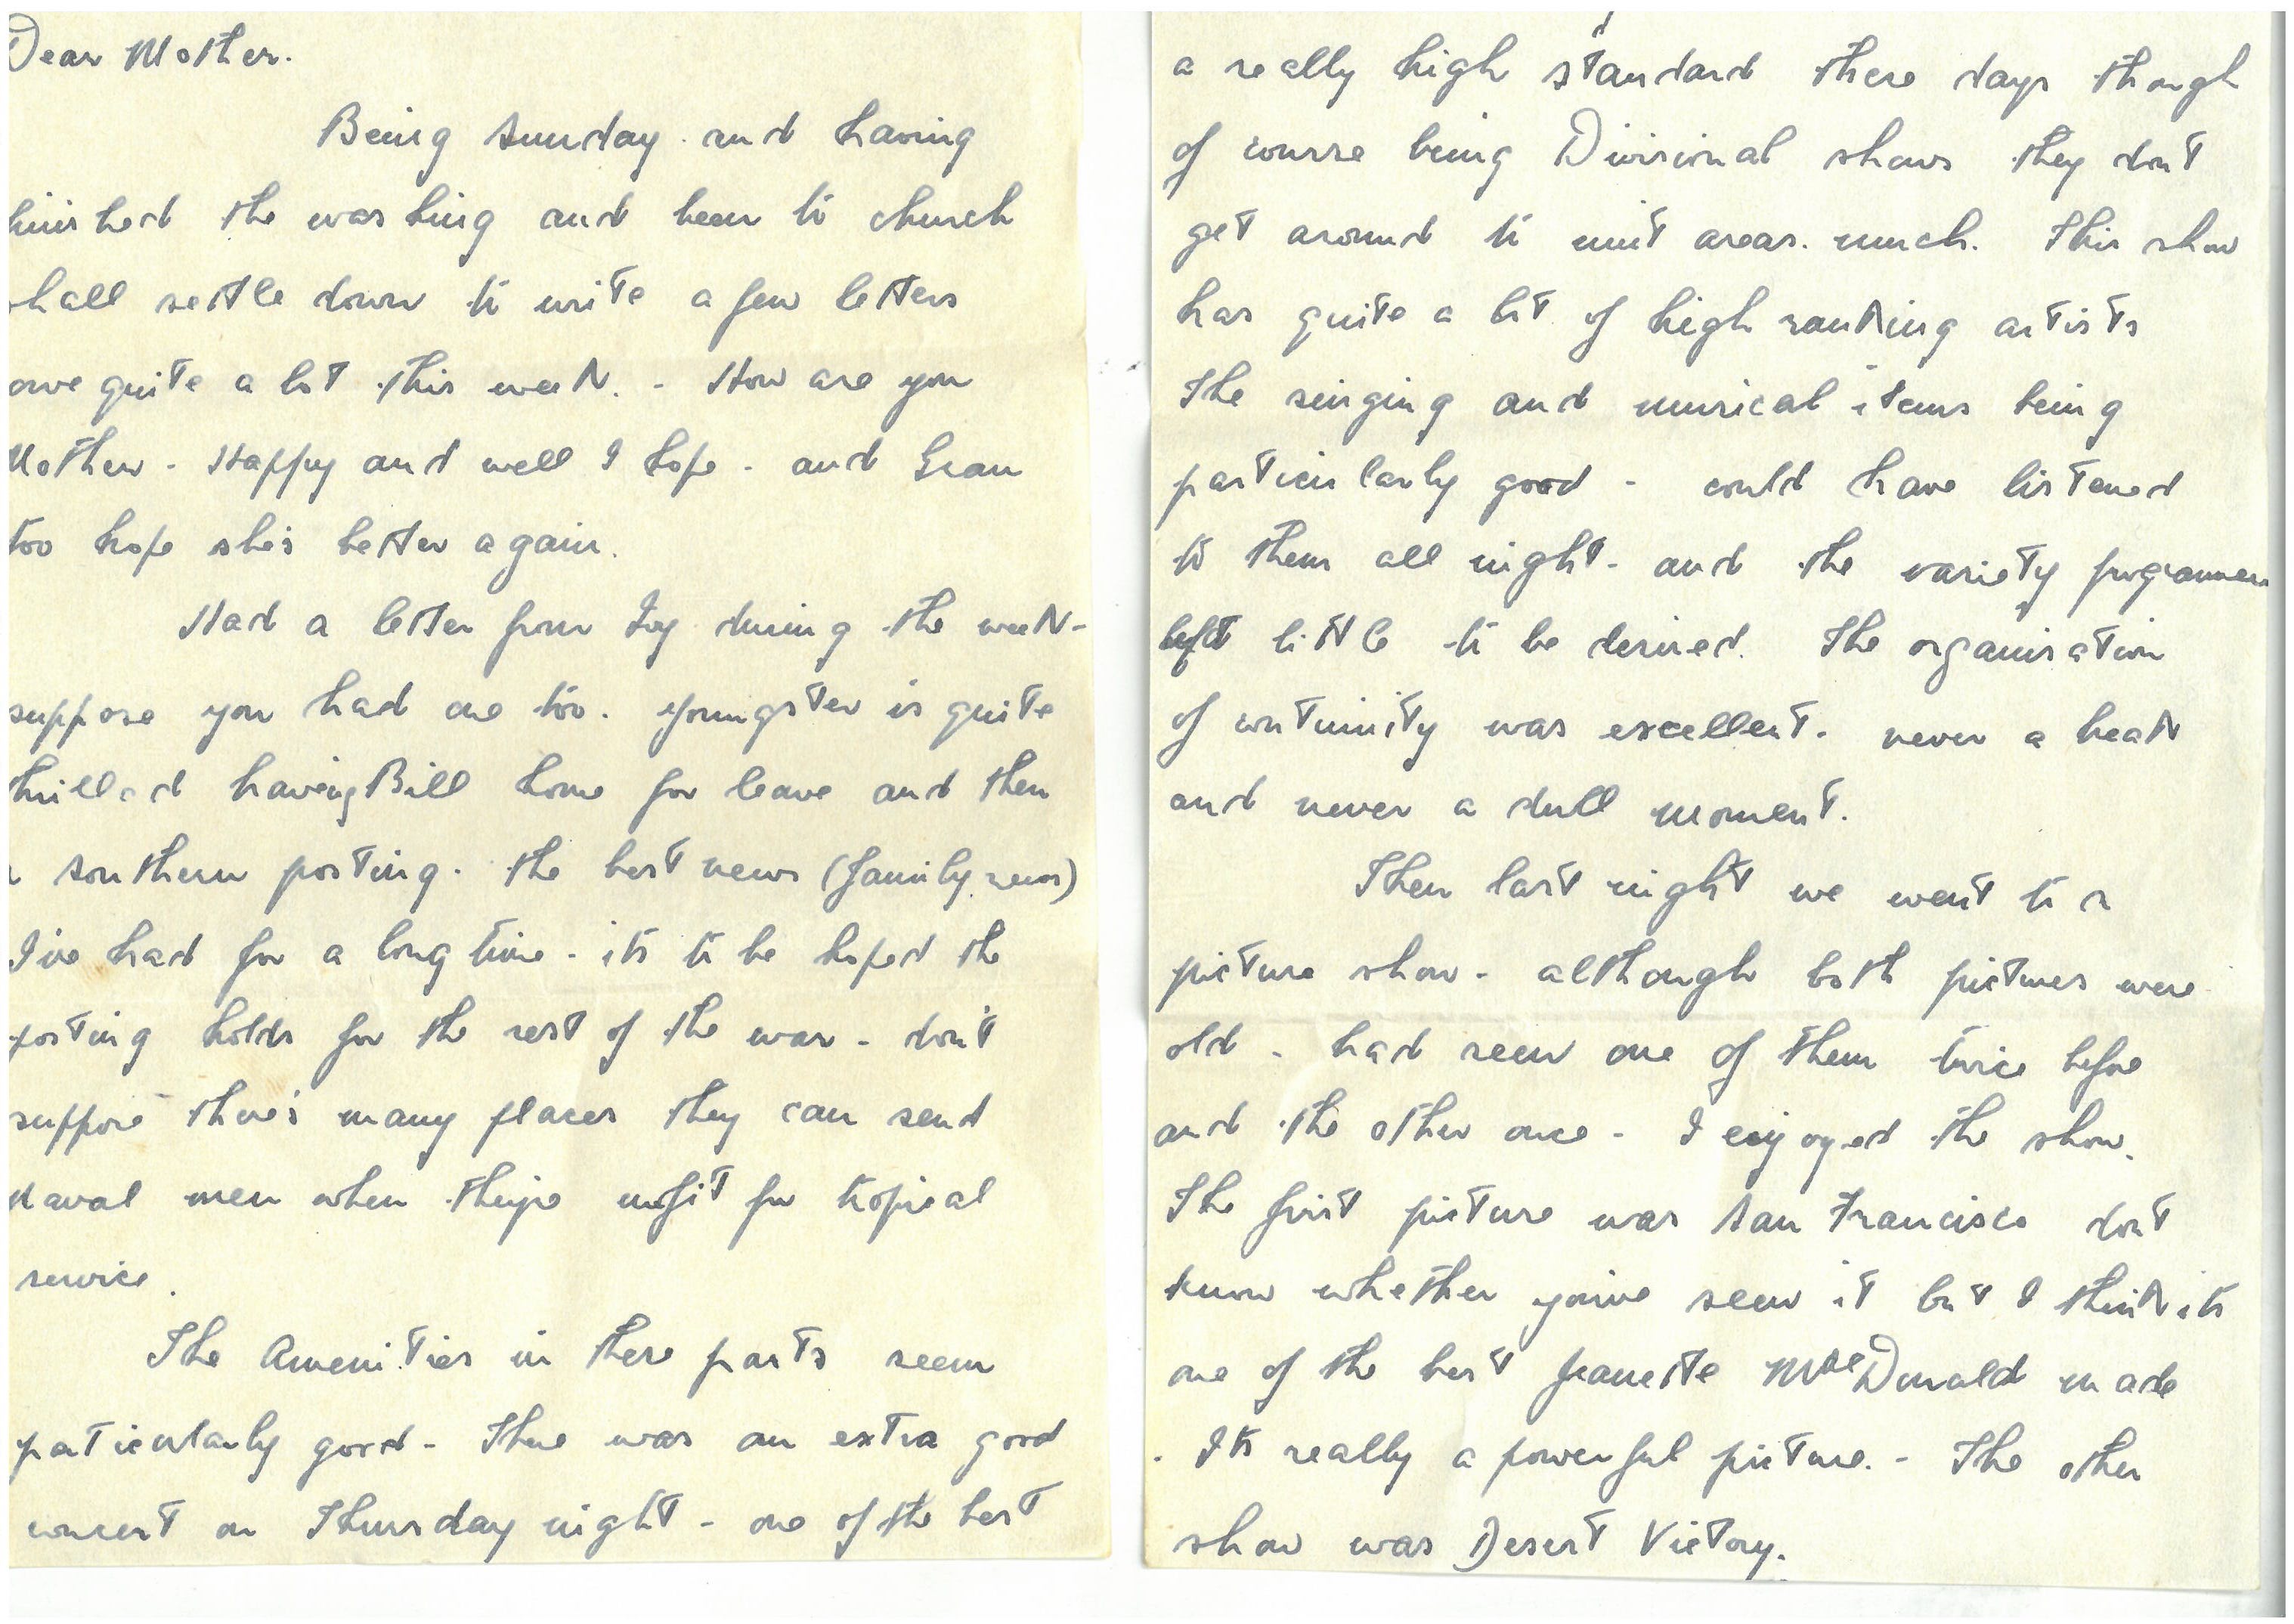 Dear Mother.
Being Sunday and having
finished the washing and been to church
shall settle down to write a few letters
owe quite a lot this week. - How are you
Mother - Happy and well I hope - and Gran
too hope she's better again.
Had a letter from Joy during the week -
suppose you had one too. youngster is quite
thrilled having Bill home for leave and then
a Southern posting. the best news (family news)
I've had for a long time - its to be hoped the
posting holds for the rest of the war - don't
suppose there's many places they can send
Naval men when they're unfit for tropical
service.
The Amenities in these parts seem
particularly good - There was an extra good
concert on Thursday night - one of the best
a really high standard these days though
of course being Divisional shows they don't
get around to unit areas much. This show
has quite a bit of high ranking artists
The singing and musical items being
particularly good - could have listened
to them all night - and the variety programmes
left little to be desired. The organisation
of continuity was excellent. never a break
and never a dull moment.
Then last night we went to a
picture show - although both pictures were
old - had seen one of them twice before
and the other once - I enjoyed the show.
The first picture was San Francisco don't
know whether you've seen it but I think its
one of the best Jeanette MacDonald made
. Its really a powerful picture. - The other
show was Desert Victory.